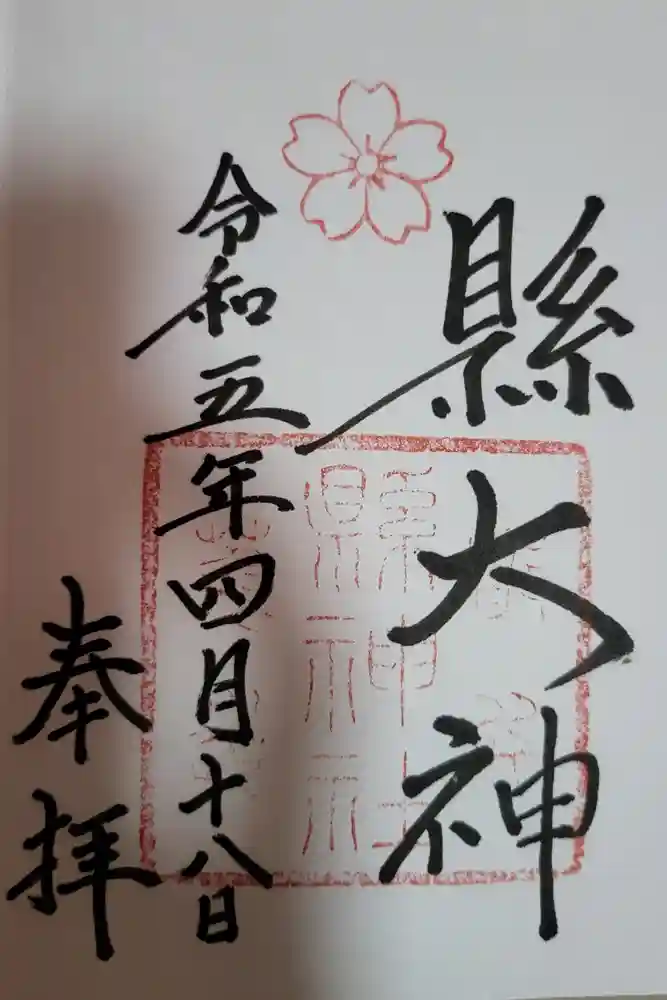 縣大神
令和五年四月十八日
奉拝
縣神社